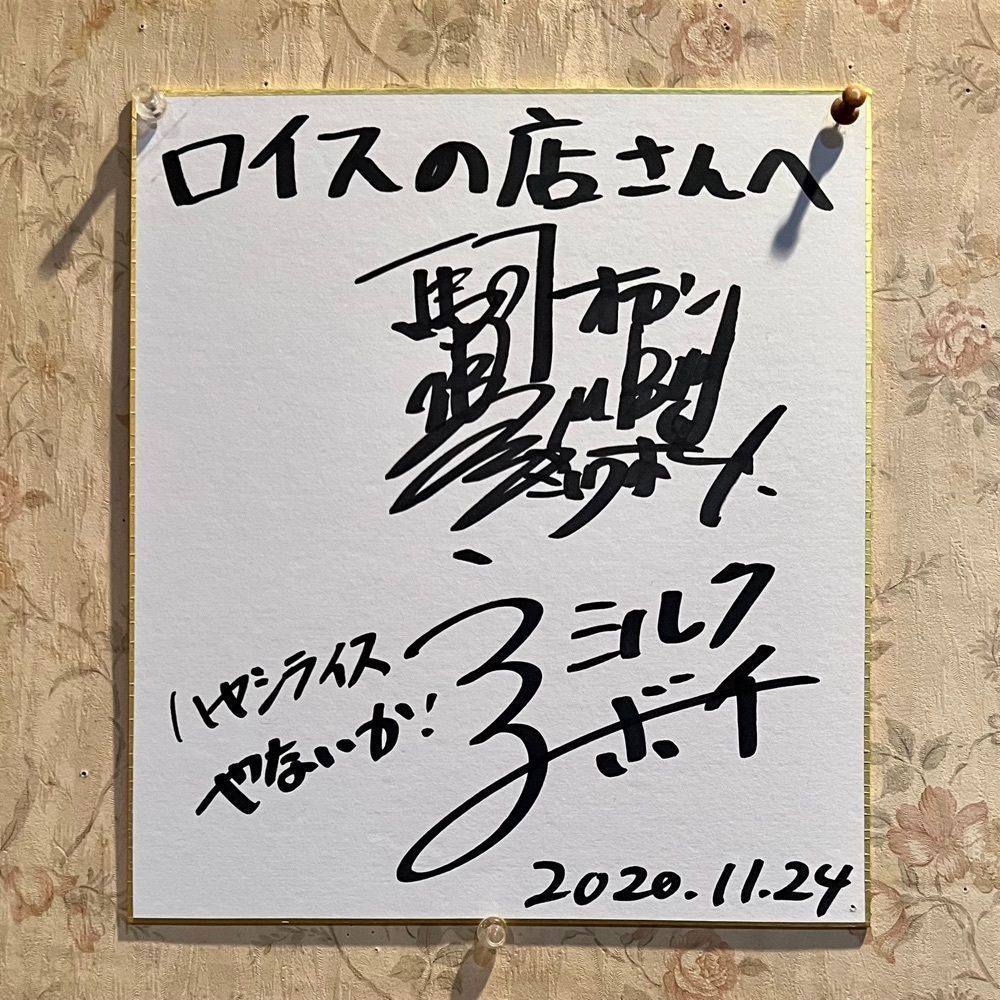 ロイスの店さんへ
駒場
ミルク
ボーイ
ハヤシライス
やないか!
2020.11.24